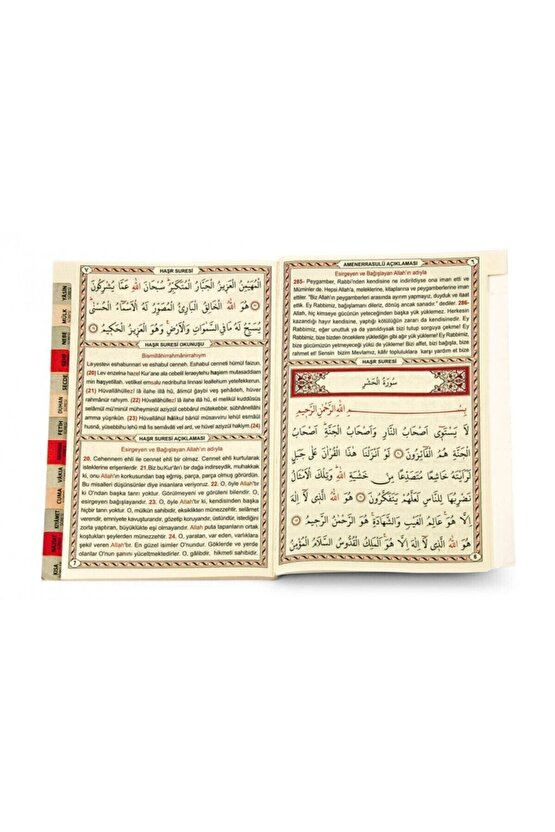 AMENERRASULÜ AÇIKLAMASI
٦
Esirgeyen ve Bağışlayan Allah'ın adıyla
285- Peygamber, Rabbi'nden kendisine ne indirildiyse ona iman etti ve
Müminler de. Hepsi Allah'a, meleklerine, kitaplarına ve peygamberlerine iman
ettiler. "Biz Allah'ın peygamberleri arasında ayırım yapmayız, duyduk ve itaat
ettik. Ey Rabbimiz, bağışlaman dileriz, dönüş ancak sanadır." dediler. 286-
Allah, hiç kimseye gücünün yeteceğinden başka yük yüklemez. Herkesin
kazandığı hayır kendisine, yaptığı kötülüğün zararı da kendisinedir. Ey
Rabbimiz, eğer unuttuk ya da yanıldıysak bizi tutup sorguya çekme! Ey
Rabbimiz, bize bizden öncekilere yüklediğin gibi ağır yük yükleme! Ey Rabbimiz,
bize gücümüzün yetmeyeceği yükü de yükleme! Bizi affet, bizi bağışla, bize
rahmet et! Sensin bizim Mevlamız, kâfir topluluklara karşı yardım et bize
HAŞR SURESİ
سُورَةُ الْحَشْرِ
بِسْمِ اللّٰهِ الرَّحْمٰنِ الرَّحِيمِ
لَا يَسْتَوِى اَصْحَابُ النَّارِ وَاَصْحَابُ الْجَنَّةِ اَصْحَابُ
الْجَنَّةِ هُمُ الْفَٓائِزُونَ لَوْ اَنْزَلْنَا هٰذَا الْقُرْاٰنَ عَلٰى جَبَلٍ
لَرَاَيْتَهُ خَاشِعًا مُتَصَدِّعًا مِنْ خَشْيَةِ اللّٰهِ وَتِلْكَ الْاَمْثَالُ
نَضْرِبُهَا لِلنَّاسِ لَعَلَّهُمْ يَتَفَكَّرُونَ هُوَ اللّٰهُ الَّذِى لَٓا اِلٰهَ
اِلَّا هُوَ عَالِمُ الْغَيْبِ وَالشَّهَادَةِ هُوَ الرَّحْمٰنُ الرَّحِيمُ
هُوَ اللّٰهُ الَّذِى لَٓا اِلٰهَ اِلَّا هُوَ اَلْمَلِكُ الْقُدُّوسُ السَّلَامُ الْمُؤْمِنُ
6
٧
HAŞR SURESİ
الْمُهَيْمِنُ الْعَزِيزُ الْجَبَّارُ الْمُتَكَبِّرُ سُبْحَانَ اللّٰهِ عَمَّا يُشْرِكُونَ
هُوَ اللّٰهُ الْخَالِقُ الْبَارِئُ الْمُصَوِّرُ لَهُ الْاَسْمَٓاءُ الْحُسْنٰى
يُسَبِّحُ لَهُ مَا فِى السَّمٰوَاتِ وَالْاَرْضِ وَهُوَ الْعَزِيزُ الْحَكِيمُ
HAŞR SURESİ OKUNUŞU
Bismillâhirrahmânirrahıym
Lâ yestevî eshabunnari ve eshabul cenneh. Eshabul cenneti hümül faizun.
(20) Lev enzelna hazel Kur'ane ala cebelil leraeytehu haşiem mutasaddiam
min haşyetillah, vetilkel emsulu nedribuha linnasi leallehum yetefekkerun.
(21) Hüvallâhüllezî lâ ilahe illâ hû, âlimül ğaybi veş şehâdeh, hüver
rahmânür rahıym. (22) Hüvallâhüllezî lâ ilahe illâ hû, el melikül kuddûsüs
selâmül mü'minül müheyminül aziyzül cebbârul mütekebbir, sübhânellâhi
amma yüşrikûn. (23) Hüvallâhul hâlikul bâriül müsavviru lehül esmâül
husnâ, yüsebbihu lehû mâ fis semâvâti vel ard, ve hüvel aziyzül hakiym. (24)
HAŞR SURESİ AÇIKLAMASI
Esirgeyen ve Bağışlayan Allah'ın adıyla
20. Cehennem ehli ile cennet ehli bir olmaz. Cennet ehli kurtularak
isteklerine erişenlerdir. 21. Biz bu Kur'ân'ı bir dağa indirseydik, muhakkak
ki, onu Allah'ın korkusundan baş eğmiş, parça, parça olmuş görürdün.
Bu misalleri düşünsünler diye insanlara veriyoruz. 22. O, öyle Allah'tır
ki O'ndan başka tanrı yoktur. Görülmeyeni ve görüleni bilendir. O,
esirgeyen bağışlayandır. 23. O, öyle Allah'tır ki, kendisinden başka
hiçbir tanrı yoktur. O, mülkün sahibidir, eksiklikten münezzehtir, selâmet
verendir, emniyete kavuşturandır, gözetip koruyandır, üstündür, istediğini
zorla yaptıran, büyüklükte eşi olmayandır. Allah puta tapanların ortak
koştukları şeylerden münezzehtir. 24. O, yaratan, var eden, varlıklara
şekil veren Allah'tır. En güzel isimler O'nundur. Göklerde ve yerde
olanlar O'nun şanını yüceltmektedirler. O, gâlibdir, hikmeti sahibidir.
7
YÂSİN
MÜLK
NEBE
SECDE
DUHAN
FETİH
VÂKIA
CUMA
KIYÂMET
KISA